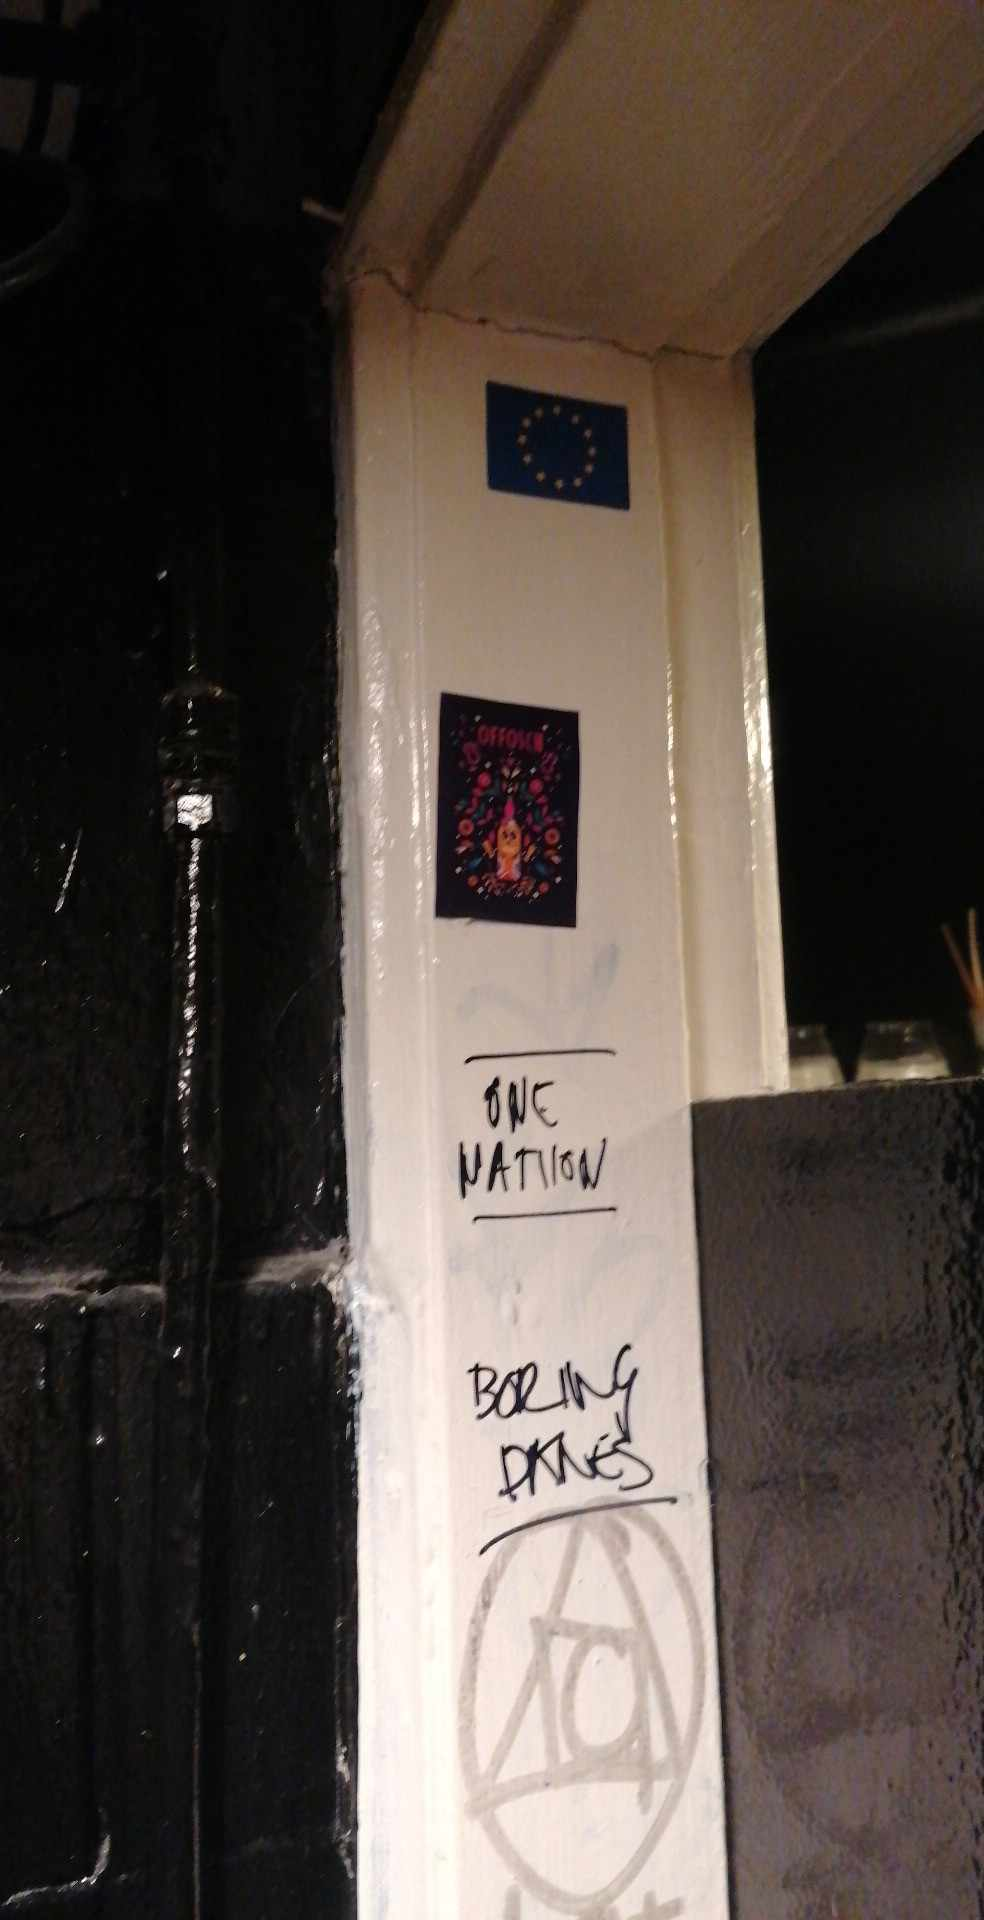 OFFOSEN
ONE
NATIION
BORING
DANES